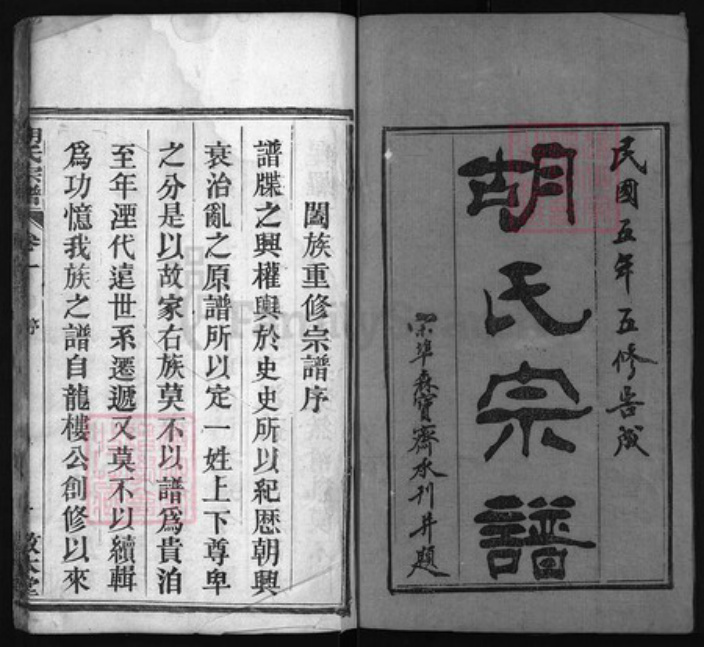 民國五年五修告成
胡氏宗譜
森寶齋承刊并題
闔族重修宗譜序
譜牒之興權輿於史史所以紀歷朝興
衰治亂之原譜所以定一姓上下尊卑
之分是以故家右族莫不以譜爲貴洎
至年湮代遠世系遷遞又莫不以續輯
爲功憶我族之譜自龍樓公創修以來
胡氏宗譜 卷一 序 一 敦本堂